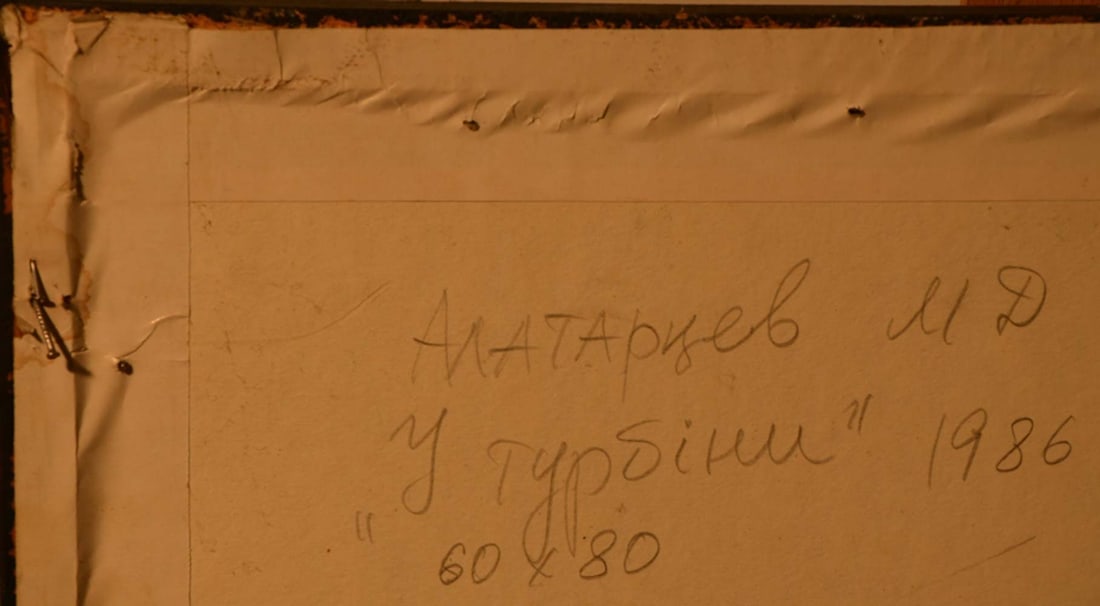 Алатарцев М Д
„У турбіни" 1986
60 x 80